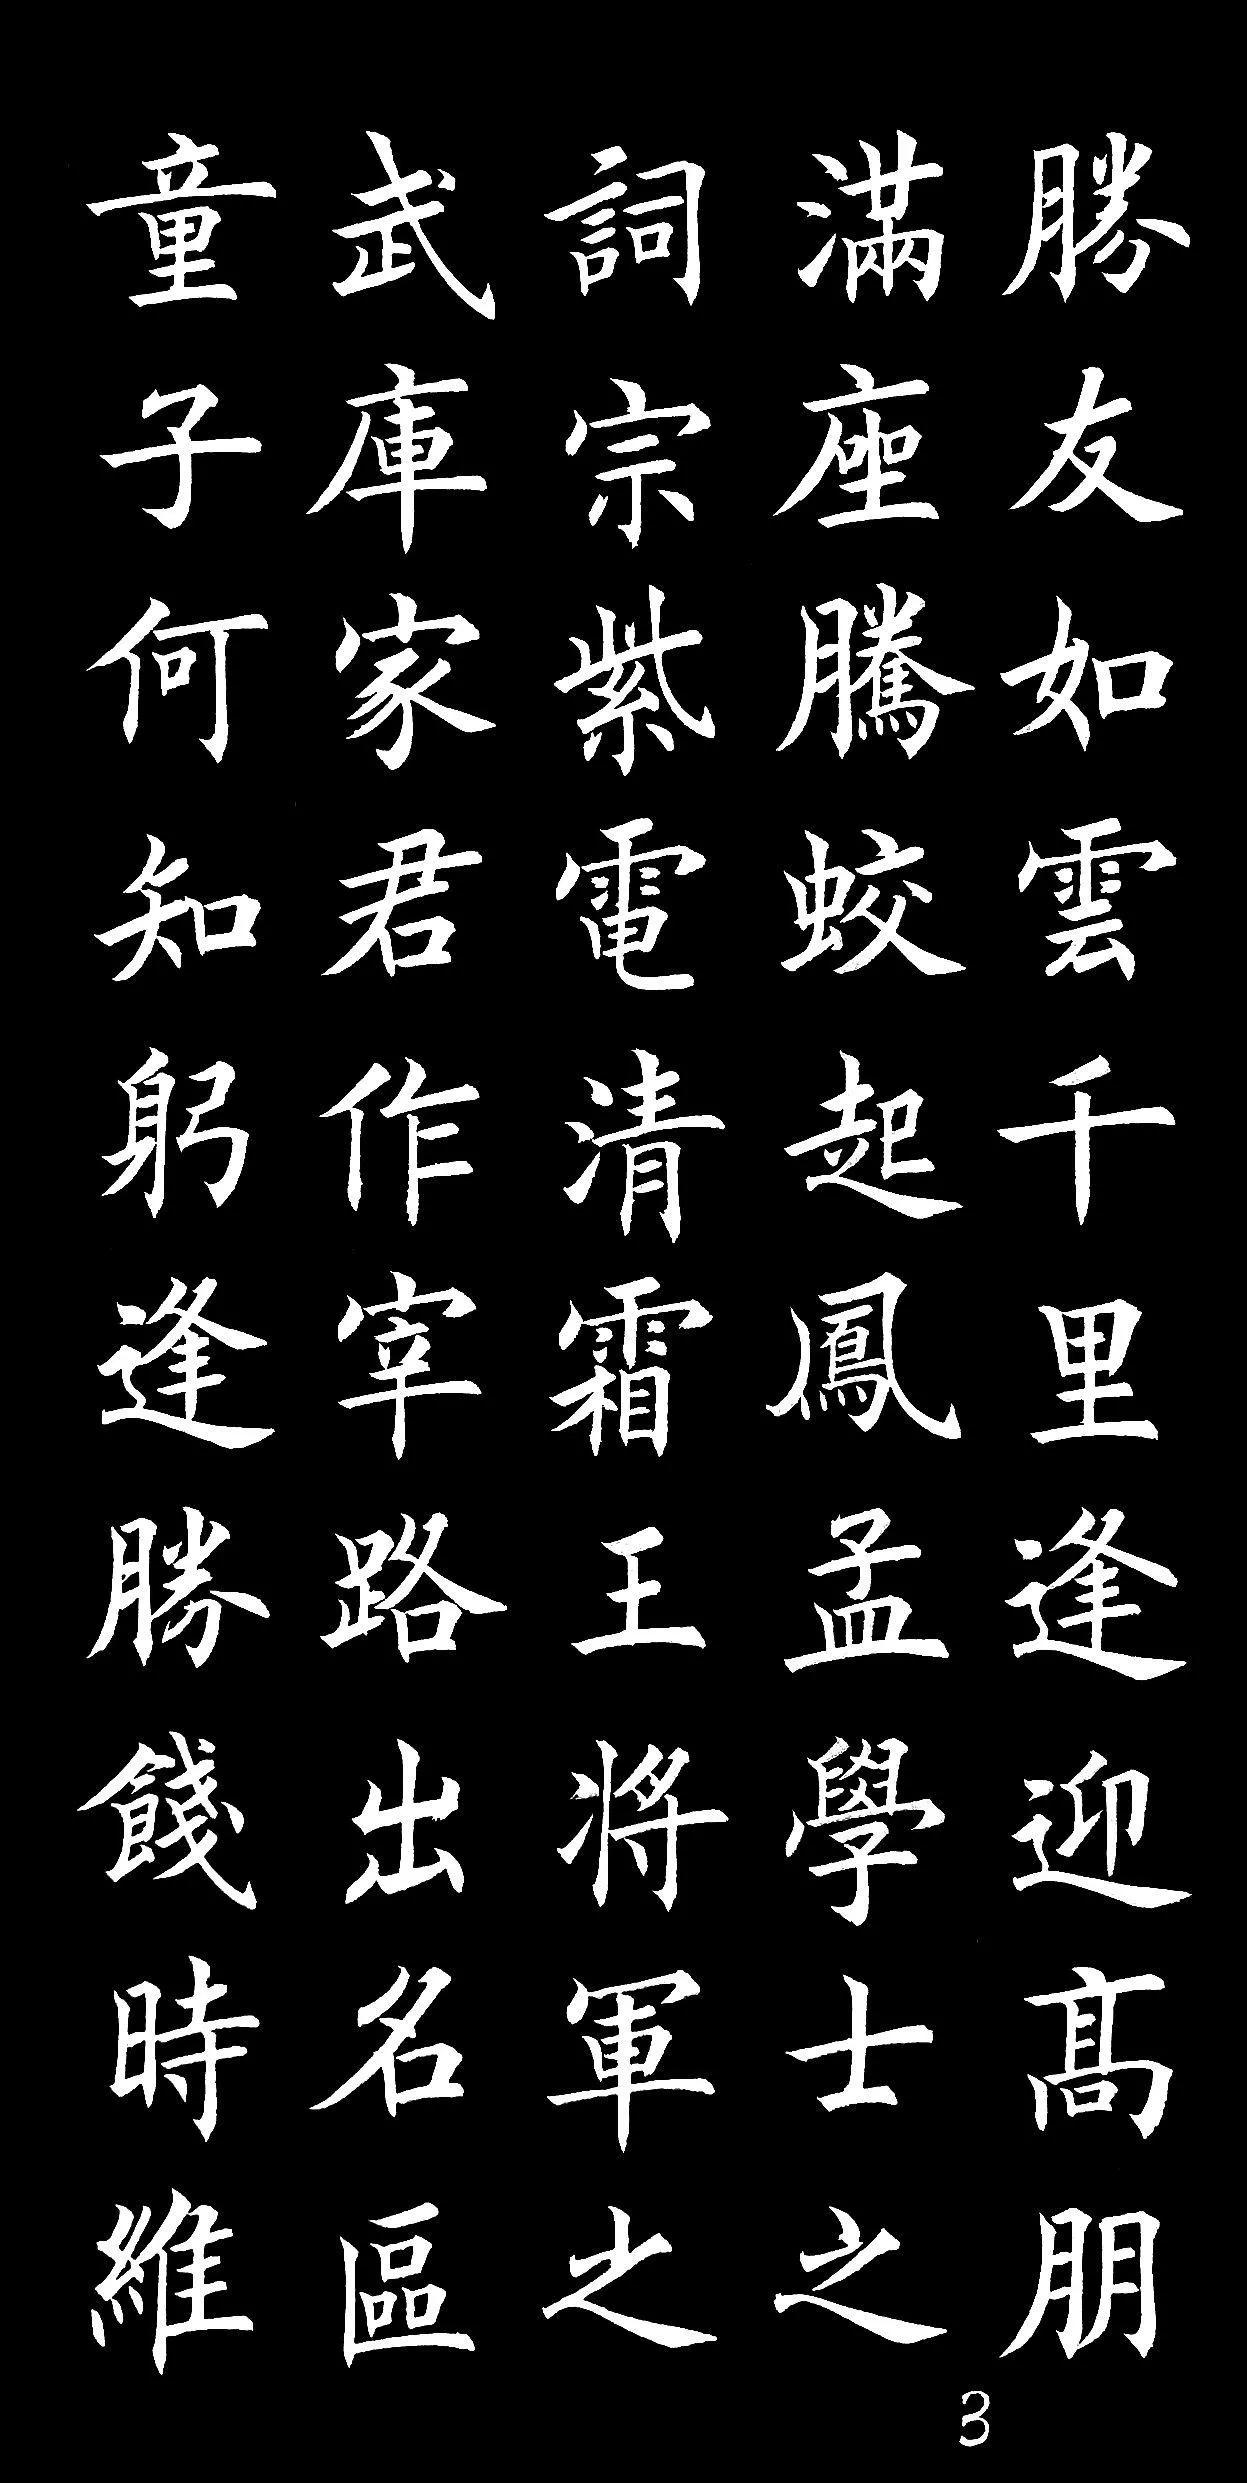 勝友如雲千里逢迎高朋
滿座騰蛟起鳳孟學士之
詞宗紫電清霜王將軍之
武庫家君作宰路出名區
童子何知躬逢勝餞時維
3